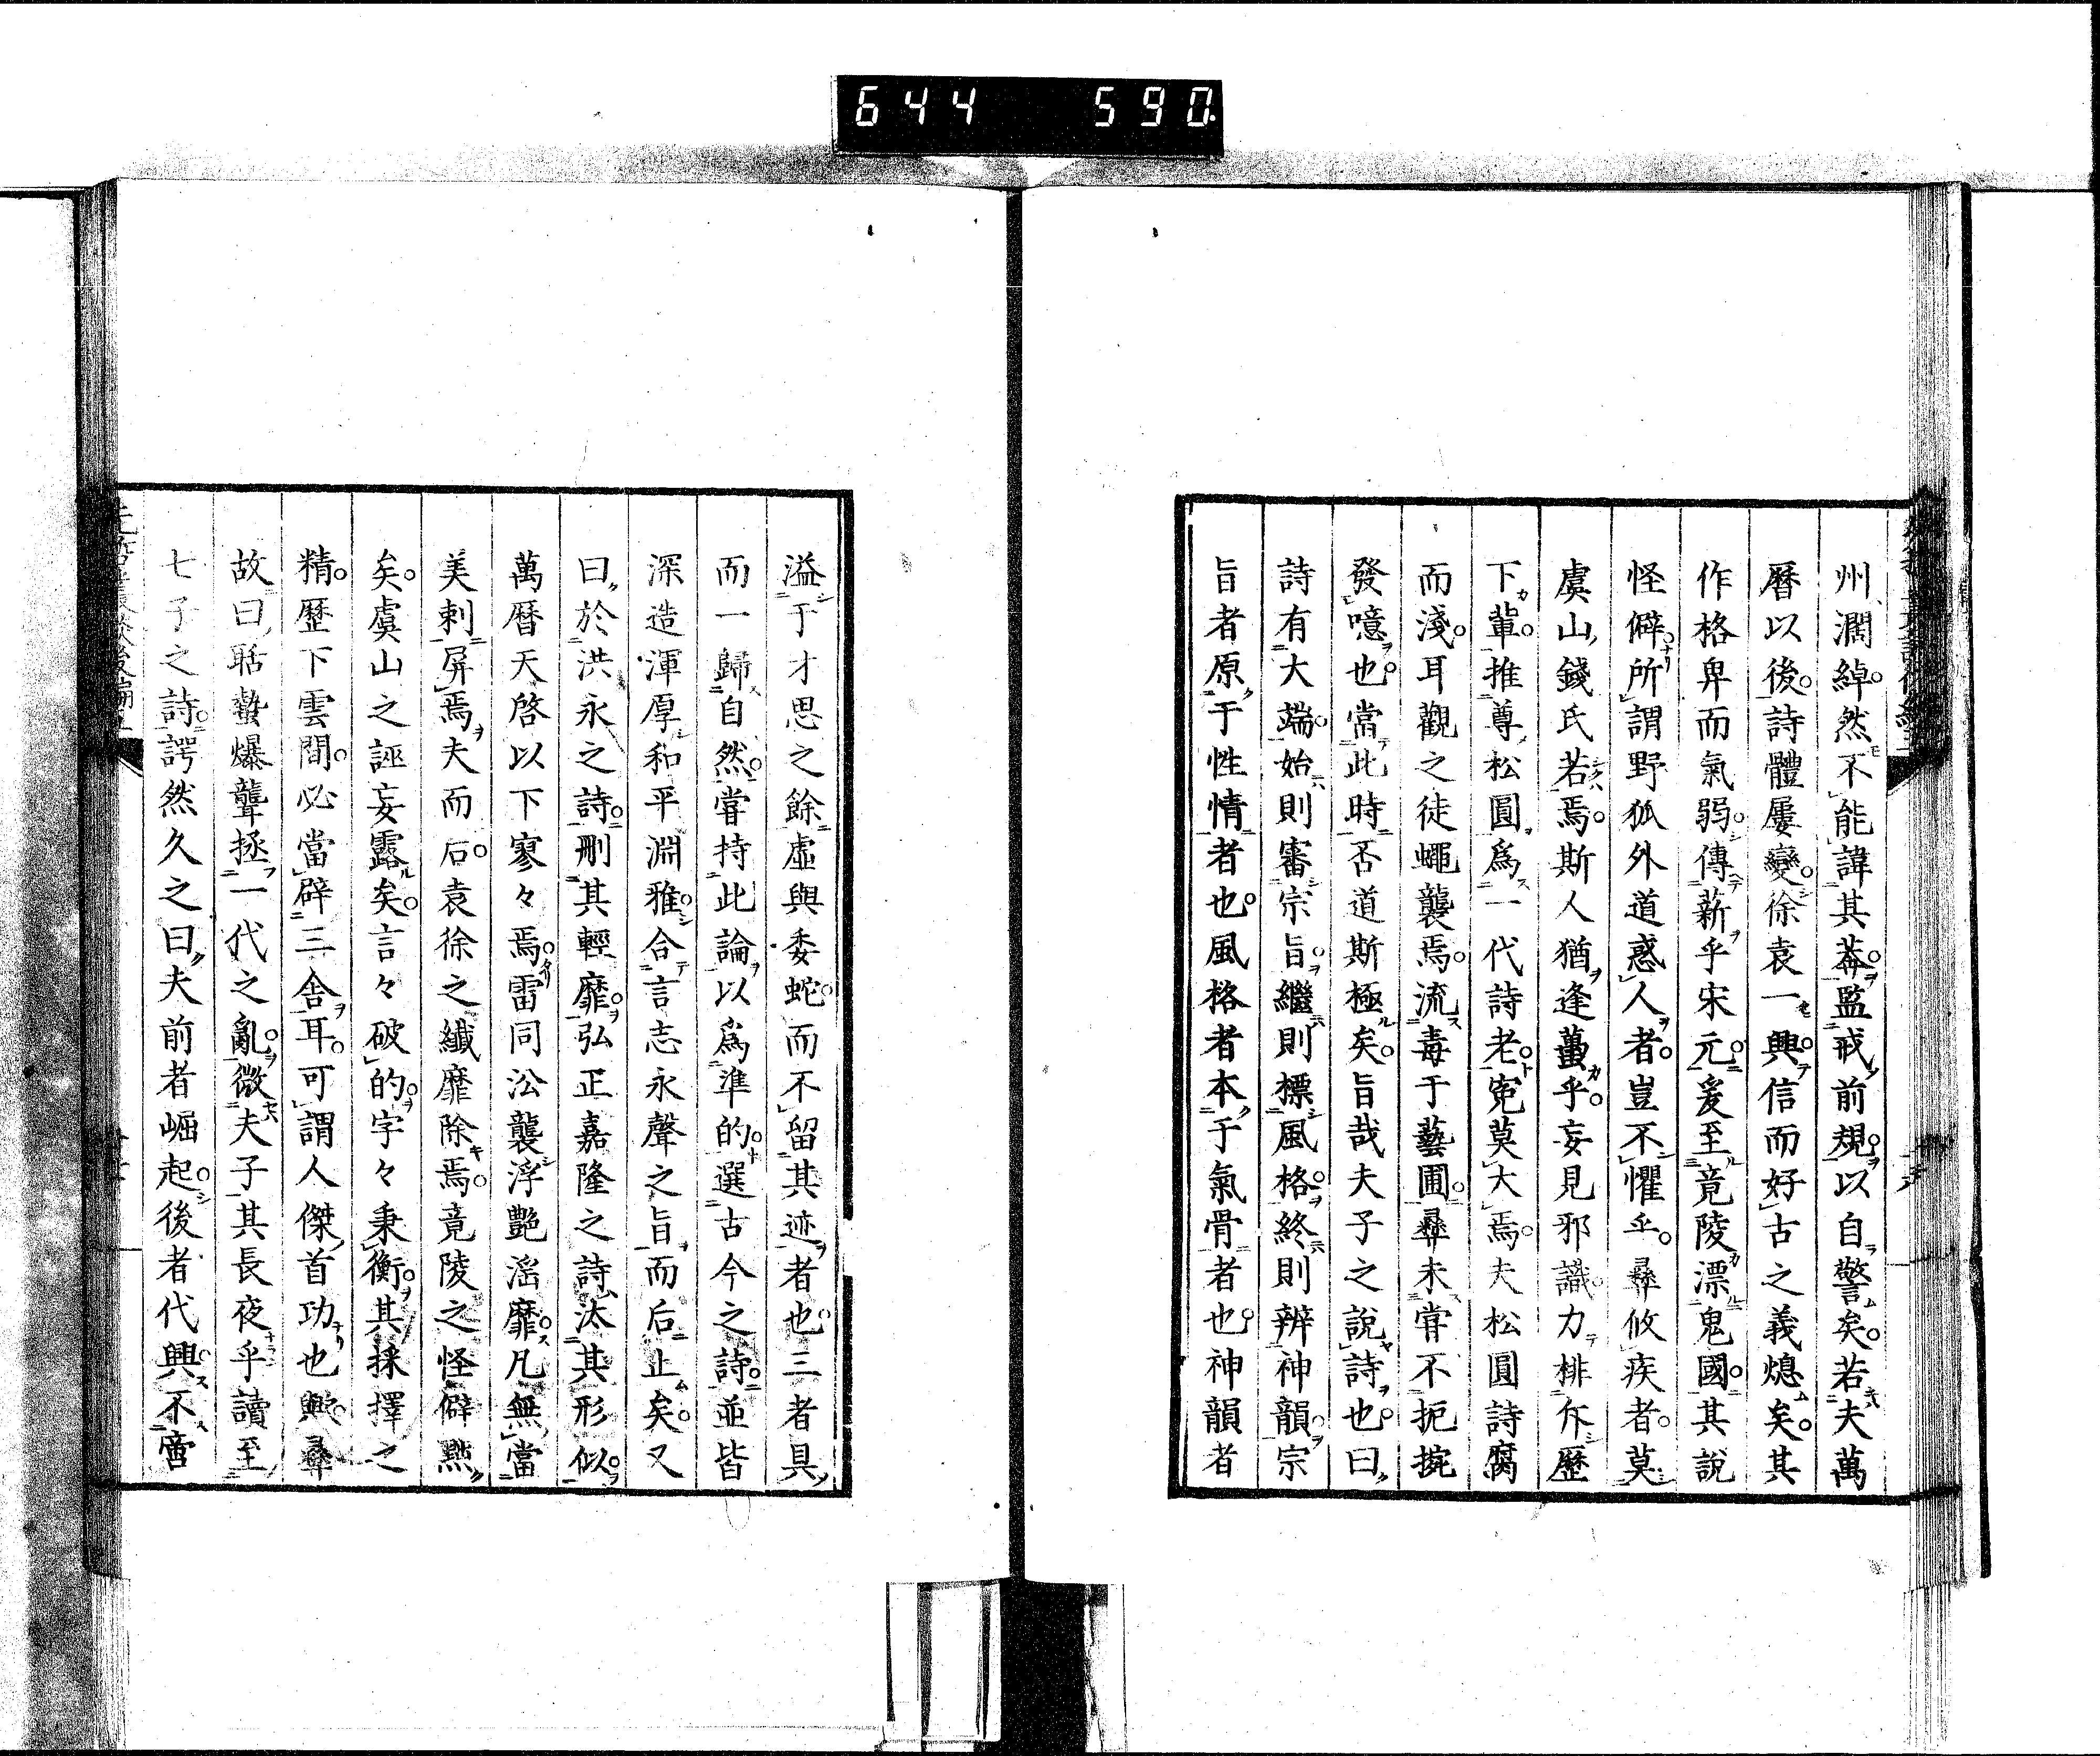 644 590
州濶綽然不能諱其莽監戒前規以自警矣若夫萬
曆以後詩體屢變徐袁一興信而好古之義熄矣其
作格卑而氣弱傳薪乎宋元爰至竟陵漂鬼國其說
怪僻所謂野狐外道惑人者豈不懼乎彝攸疾者莫
虞山錢氏若焉斯人猶逢蠆乎妄見邪識力排斥歷
下輩推尊松圓爲一代詩老寃莫大焉夫松圓詩腐
而淺耳觀之徒蠅襲焉流毒于藝圃彝未嘗不扼捥
發噫也當此時否道斯極矣旨哉夫子之說詩也曰
詩有大端始則審宗旨繼則標風格終則辨神韻宗
旨者原于性情者也風格者本于氣骨者也神韻者
溢于才思之餘虛與委蛇而不留其迹者也三者具
而一歸自然嘗持此論以爲準的選古今之詩並皆
深造渾厚和平淵雅合言志永聲之旨而后止矣又
曰於洪永之詩刪其輕靡弘正嘉隆之詩汰其形似
萬曆天啓以下寥々焉雷同沿襲浮艷滛靡凡無當
美刺屏焉夫而后袁徐之纖靡除焉竟陵之怪僻黜
矣虞山之誣妄露矣言々破的字々秉衡其採擇之
精歷下雲間必當辟三舍耳可謂人傑首功也歟彝
故曰聒蟄爆聾拯一代之亂微夫子其長夜乎讀至
七子之詩諤然久之曰夫前者崛起後者代興不啻